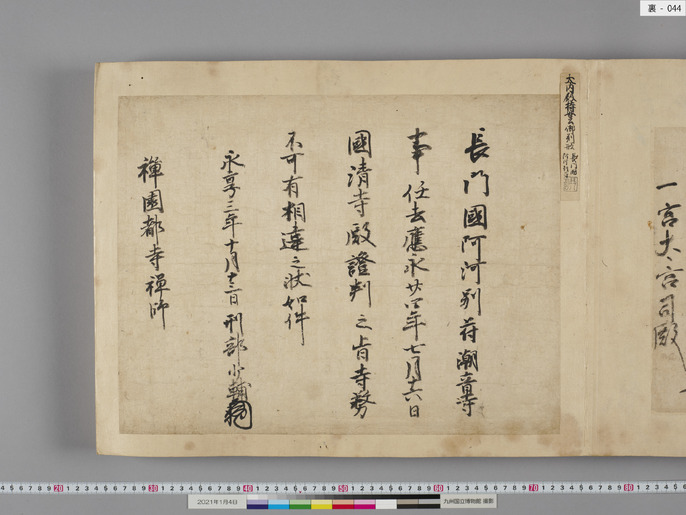 裏 - 044
一宮大宮司殿
大内殿持世御判
長門國阿河別符潮音寺
事任去應永廿四年七月十六日
國清寺殿證判之旨寺務
不可有相違之状如件
永享三年十月 日 刑部少輔
禅園都寺禅師
2021年1月4日
九州国立博物館 撮影